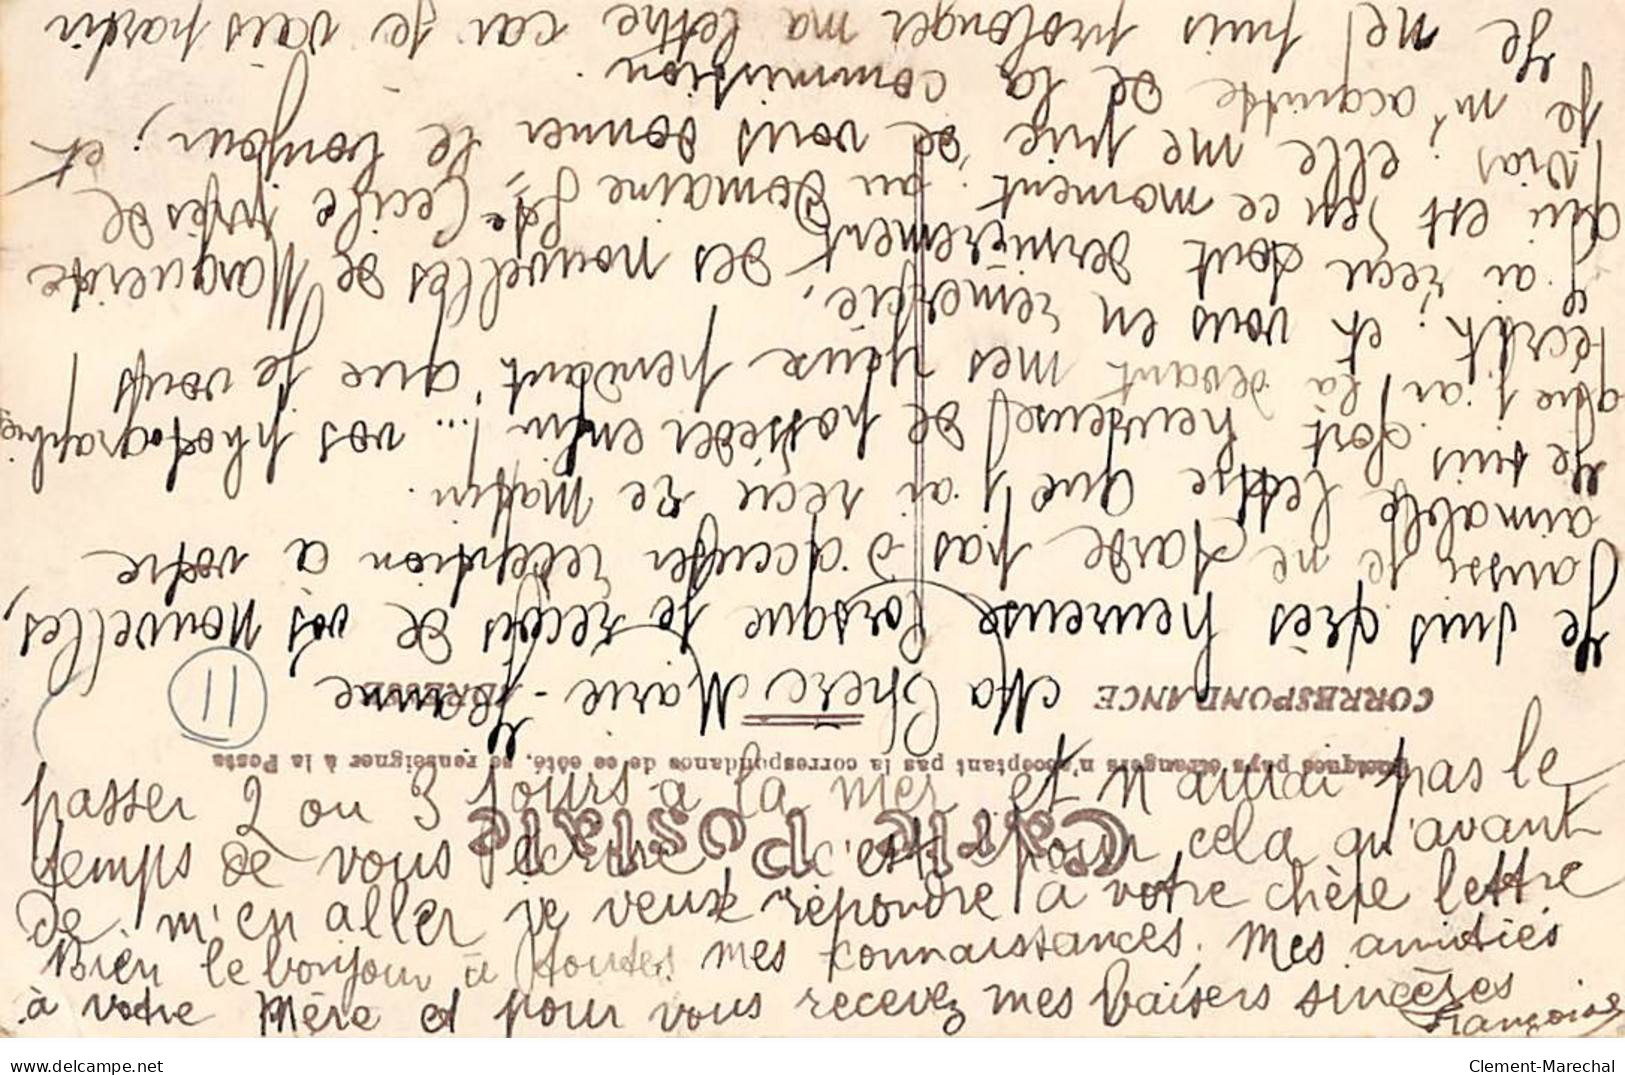 Carte Postale
Quelques pays étrangers n'acceptant pas la correspondance de ce côté, se renseigner à la Poste
CORRESPONDANCE
ADRESSE
11
Ma Chère Marie-Jeanne
Je suis très heureuse lorsque je reçois de vos nouvelles,
aussi je ne tarde pas d'accuser réception à votre
aimable lettre que j'ai reçu ce matin.
Je suis fort heureuse de posséder enfin !... vos photographies
que j'ai là devant mes yeux pendant que je vous
écris ; et vous en remercie.
J'ai reçu tout dernièrement, des nouvelles de Marguerite
qui est en ce moment au Domaine Ste Cecile près de
Vias ; elle me prie de vous donner le bonjour ; et
je m'acquitte de la commission.
Je ne puis prolonger ma lettre car je vais partir
passer 2 ou 3 jours à la mer et n'aurai pas le
temps de vous écrire c'est pour cela qu'avant
de m'en aller je veux répondre à votre chère lettre
Bien le bonjour à toutes mes connaissances. Mes amitiés
à votre Mère et pour vous recevez mes baisers sincères
Françoise
www.delcampe.net
Clement-Marechal